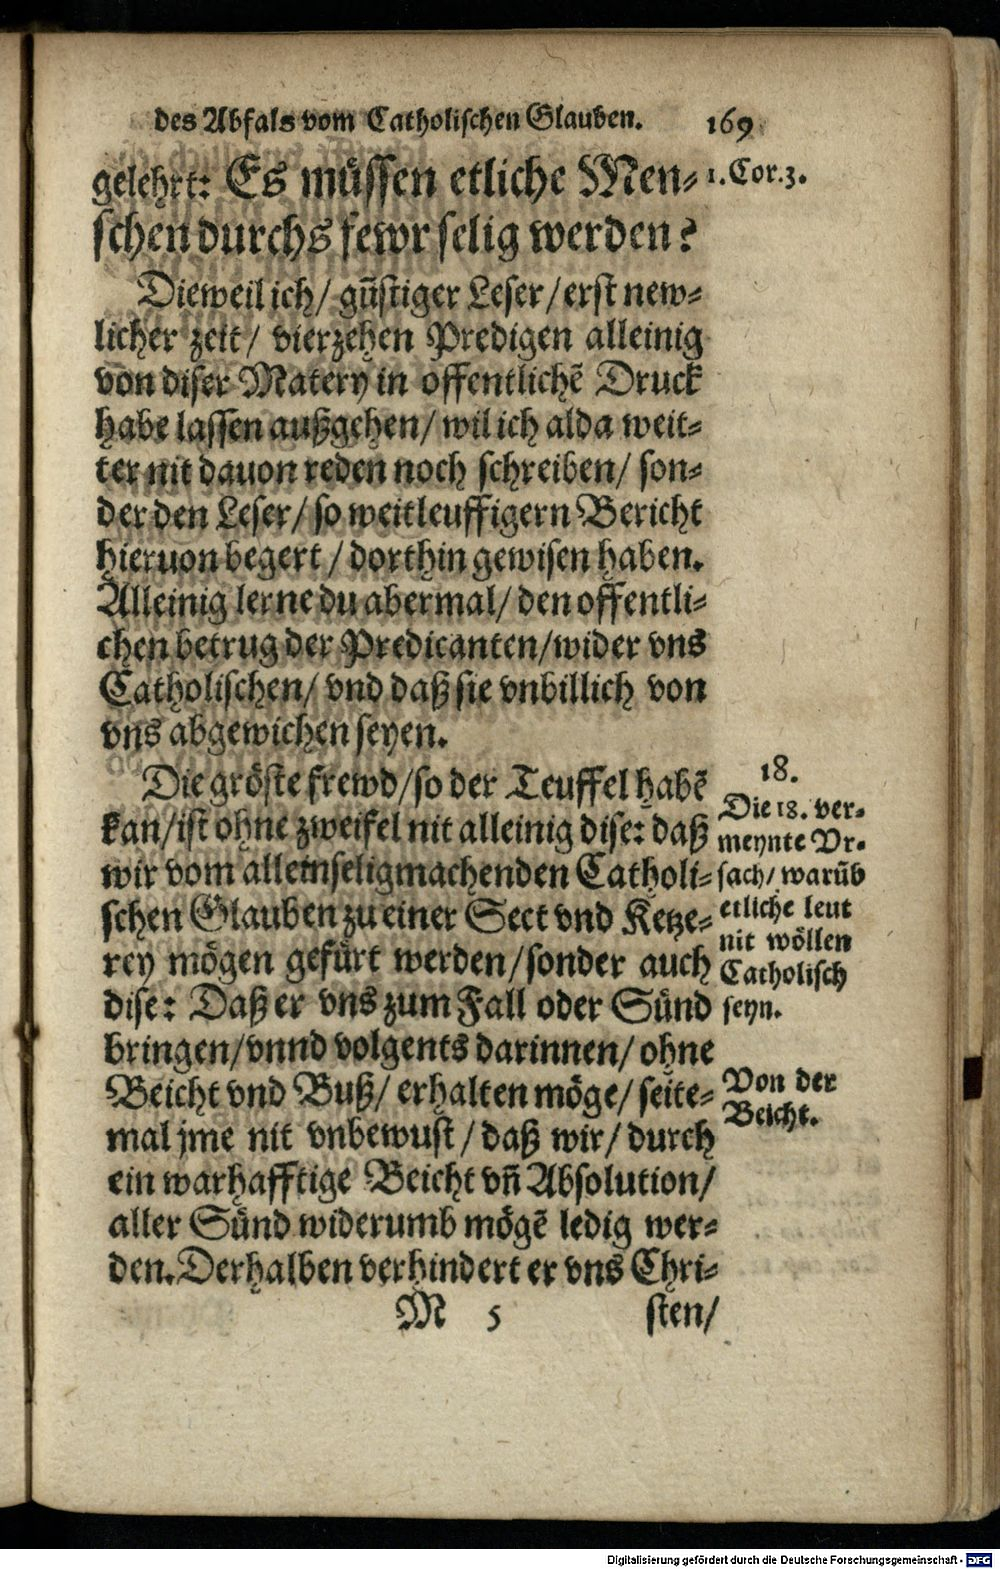 des Abfals vom Catholischen Glauben. 169
gelehrt: Es müssen etliche Men-
schen durchs fewr selig werden?
1. Cor. 3.
Dieweil ich/ gũstiger Leser/ erst new-
licher zeit/ vierzehen Predigen alleinig
von diser Matery in offentlichẽ Druck
habe lassen außgehen/ wil ich alda weit-
ter nit dauon reden noch schreiben/ son-
der den Leser/ so weitleuffigern Bericht
hieruon begert / dorthin gewisen haben.
Alleinig lerne du abermal/ den offentli-
chen betrug der Predicanten/ wider vns
Catholischen/ vnd daß sie vnbillich von
vns abgewichen seyen.
Die gröste frewd/ so der Teuffel habẽ
kan/ ist ohne zweifel nit alleinig dise: daß
wir vom alleinseligmachenden Catholi-
schen Glauben zu einer Sect vnd Ketze-
rey mögen gefürt werden/ sonder auch
dise: Daß er vns zum Fall oder Sünd
bringen/ vnnd volgents darinnen/ ohne
Beicht vnd Buß/ erhalten möge/ seite-
mal jme nit vnbewust / daß wir/ durch
ein warhafftige Beicht vñ Absolution/
aller Sünd widerumb mögẽ ledig wer-
den. Derhalben verhindert er vns Chri-
18.
Die 18. ver-
meynte Vr-
sach/ warũb
etliche leut
nit wöllen
Catholisch
seyn.
Von der
Beicht.
M 5 sten/
Digitalisierung gefördert durch die Deutsche Forschungsgemeinschaft - DFG